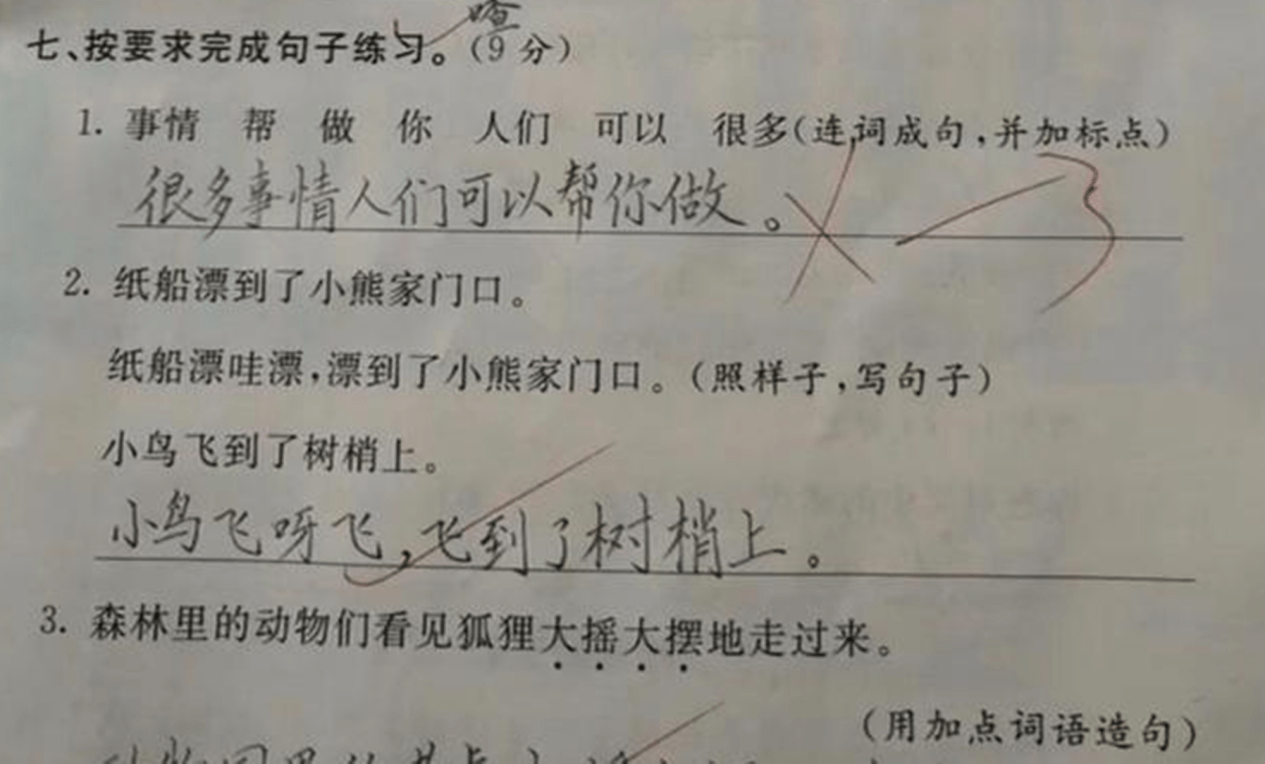 喳
七、按要求完成句子练习。(9分)
1. 事情 帮 做 你 人们 可以 很多(连词成句,并加标点)
很多事情人们可以帮你做。
2. 纸船漂到了小熊家门口。
纸船漂哇漂,漂到了小熊家门口。(照样子,写句子)
小鸟飞到了树梢上。
小鸟飞呀飞,飞到了树梢上。
3. 森林里的动物们看见狐狸大摇大摆地走过来。
(用加点词语造句)